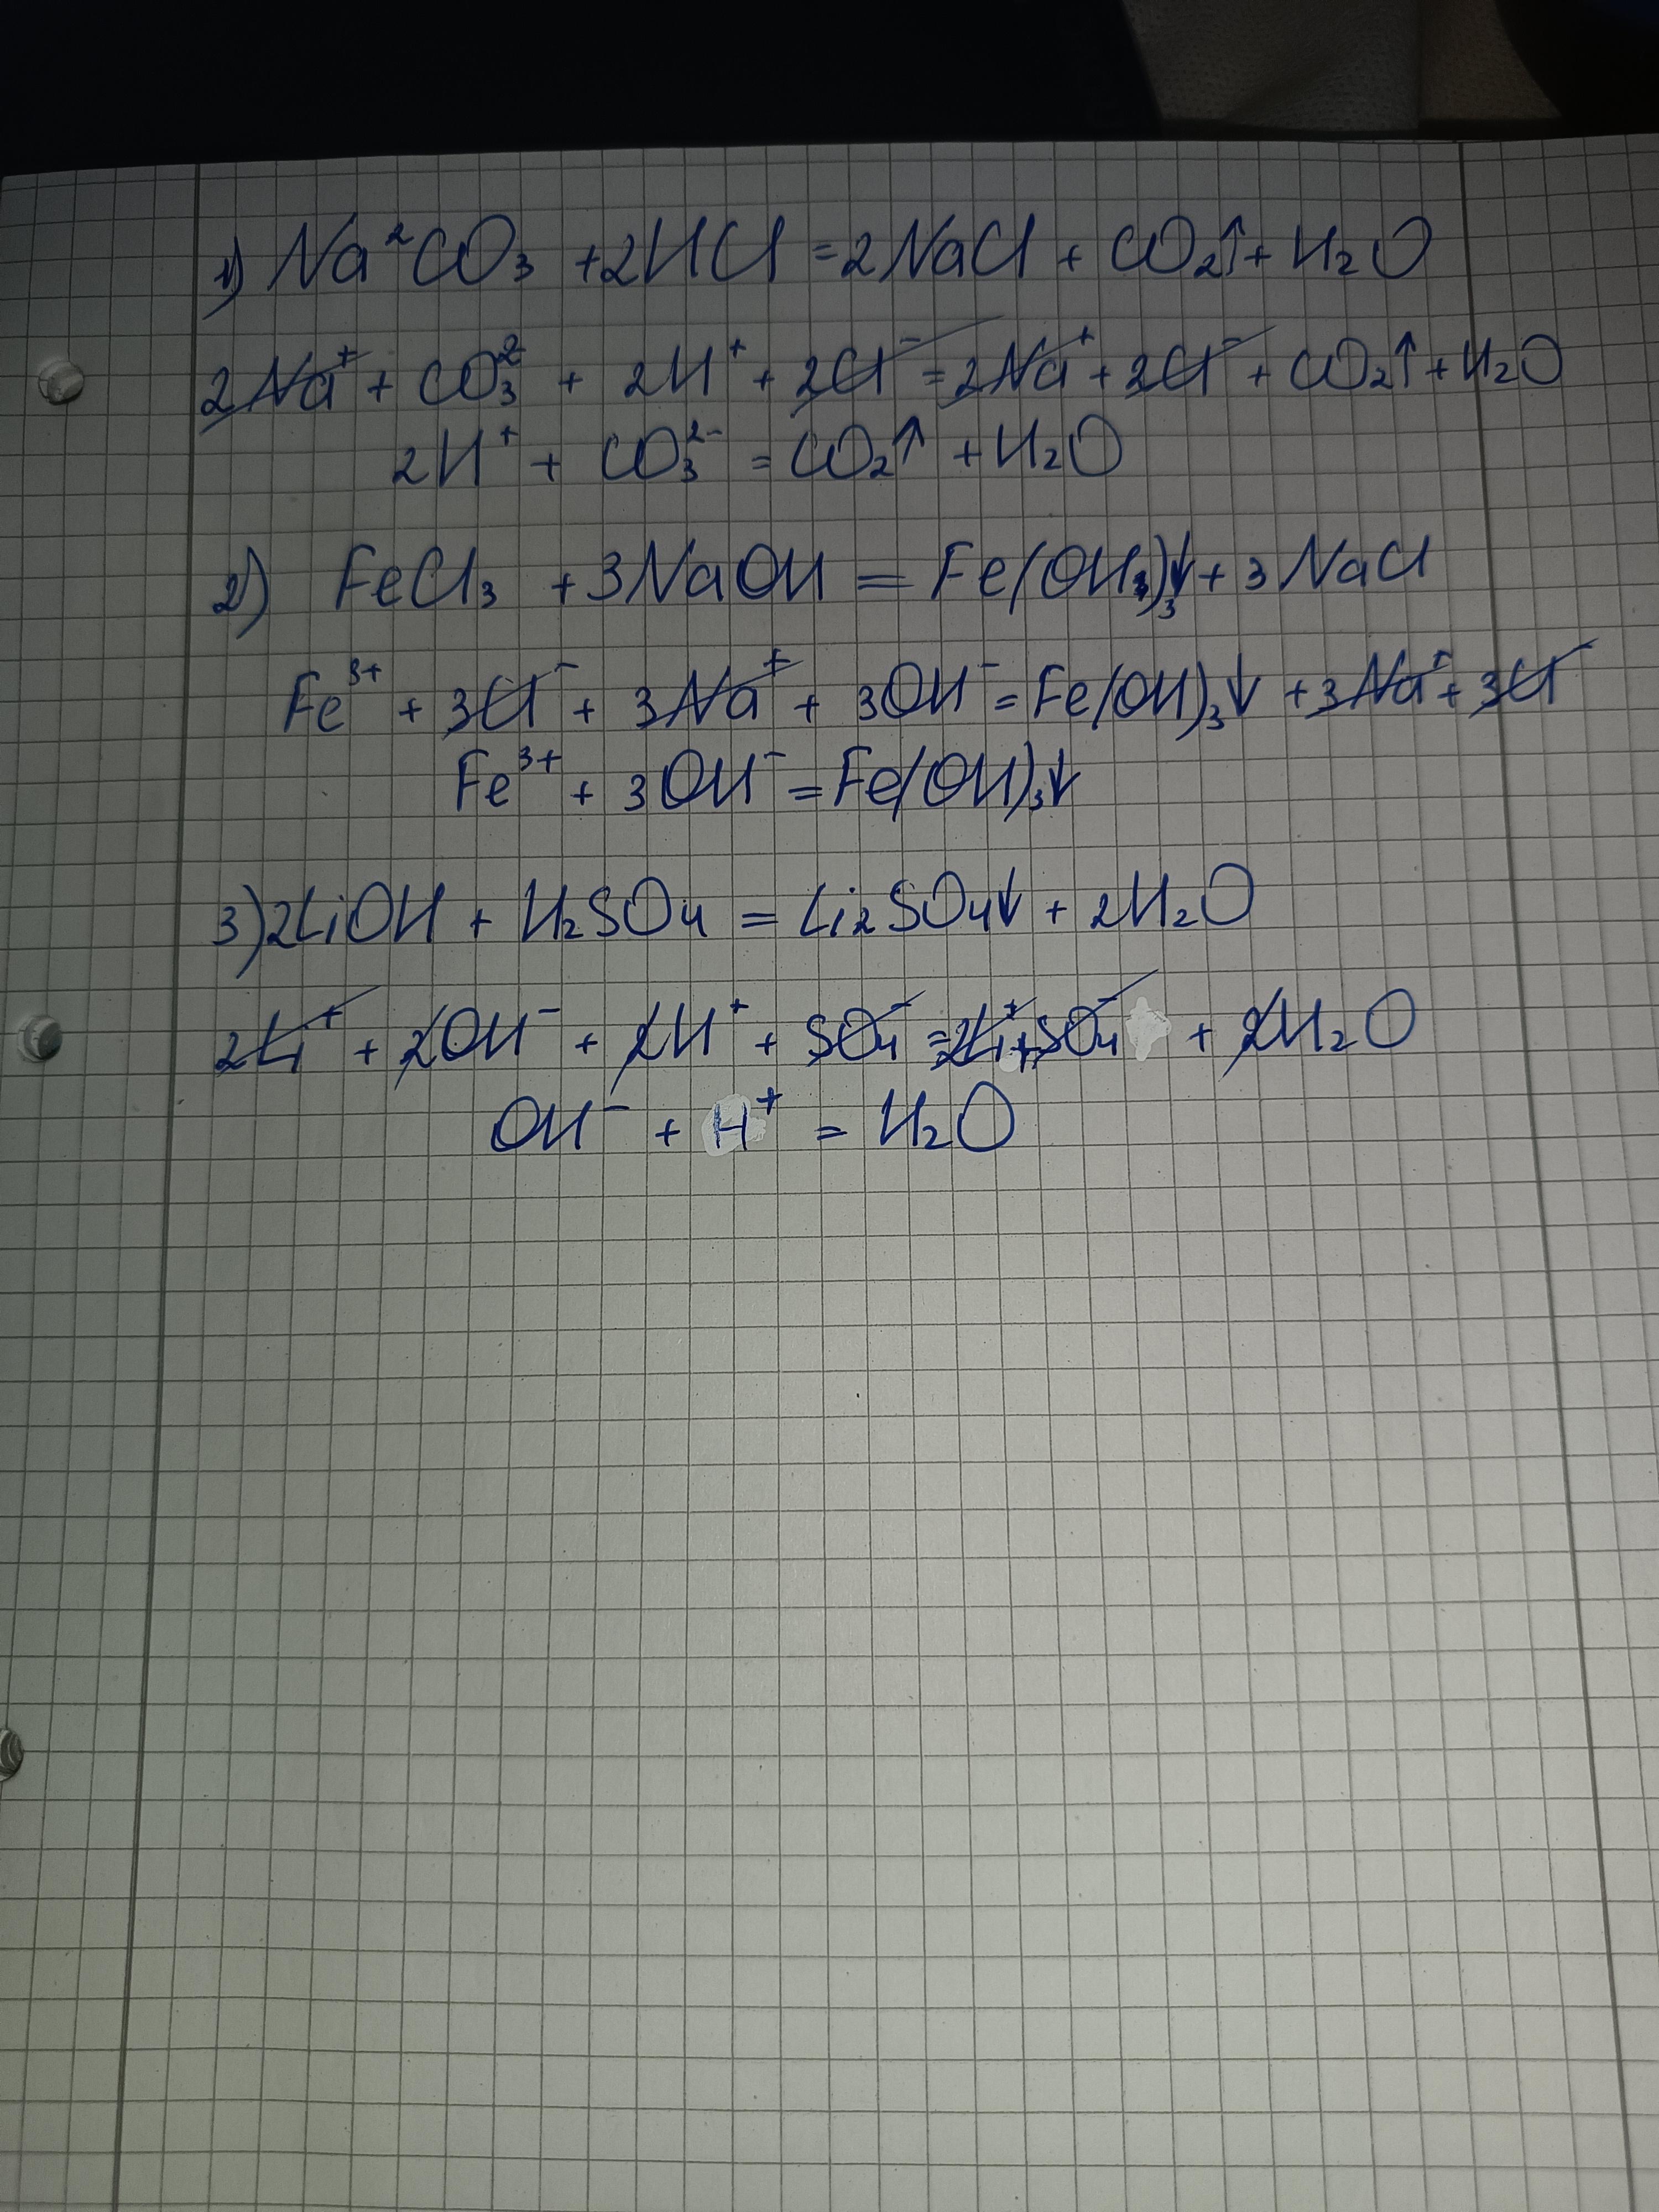 1) Na²CO₃ + 2HCl = 2NaCl + CO₂↑ + H₂O
2Na⁺ + CO₃²⁻ + 2H⁺ + 2Cl⁻ = 2Na⁺ + 2Cl⁻ + CO₂↑ + H₂O
2H⁺ + CO₃²⁻ = CO₂↑ + H₂O
2) FeCl₃ + 3NaOH = Fe(OH)₃↓ + 3NaCl
Fe³⁺ + 3Cl⁻ + 3Na⁺ + 3OH⁻ = Fe(OH)₃↓ + 3Na⁺ + 3Cl⁻
Fe³⁺ + 3OH⁻ = Fe(OH)₃↓
3) 2LiOH + H₂SO₄ = Li₂SO₄↓ + 2H₂O
2Li⁺ + 2OH⁻ + 2H⁺ + SO₄⁻ = 2Li⁺ + SO₄⁻ + 2H₂O
OH⁻ + H⁺ = H₂O